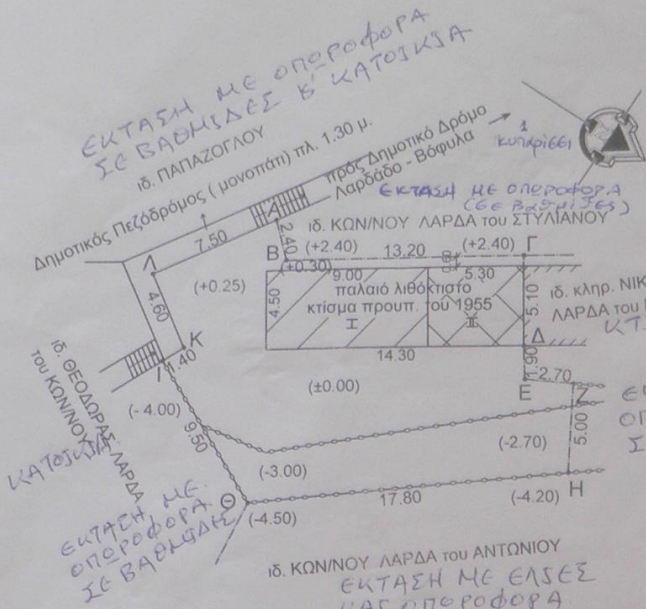 ΕΚΤΑΣΗ ΜΕ ΟΠΩΡΟΦΟΡΑ
ΣΕ ΒΑΘΜΙΔΕΣ & ΚΑΤΟΙΚΙΑ
ιδ. ΠΑΠΑΖΟΓΛΟΥ
Δημοτικός Πεζόδρομος ( μονοπάτι) πλ. 1.30 μ.
πρός Δημοτικό Δρόμο
Λαρδάδο - Βόφυλα
1
κυπαρίσσι
ΕΚΤΑΣΗ ΜΕ ΟΠΩΡΟΦΟΡΑ
(ΣΕ ΒΑΘΜΙΔΕΣ)
ιδ. ΚΩΝ/ΝΟΥ ΛΑΡΔΑ του ΣΤΥΛΙΑΝΟΥ
Α
7.50
2.40
(+2.40)
13.20
(+2.40)
Γ
Β
(+0.30)
9.00
5.30
Λ
(+0.25)
4.60
4.50
παλαιό λιθόκτιστο
κτίσμα προυπ. του 1955
I
II
5.10
ιδ. κληρ. ΝΙΚ
ΛΑΡΔΑ του
ΚΤ
Κ
1.40
Ι
14.30
Δ
1.90
(±0.00)
2.70
Ε
Ζ
ιδ. ΘΕΟΔΩΡΑΣ ΛΑΡΔΑ
του ΚΩΝ/ΝΟΥ
ΚΑΤΟΙΚΙΑ
(- 4.00)
9.50
(-2.70)
5.00
(-3.00)
Θ
(-4.50)
17.80
(-4.20)
Η
ΕΚΤΑΣΗ ΜΕ
ΟΠΩΡΟΦΟΡΑ
ΣΕ ΒΑΘΜΙΔΕΣ
ιδ. ΚΩΝ/ΝΟΥ ΛΑΡΔΑ του ΑΝΤΩΝΙΟΥ
ΕΚΤΑΣΗ ΜΕ ΕΛΙΕΣ
ΚΑΙ ΟΠΩΡΟΦΟΡΑ